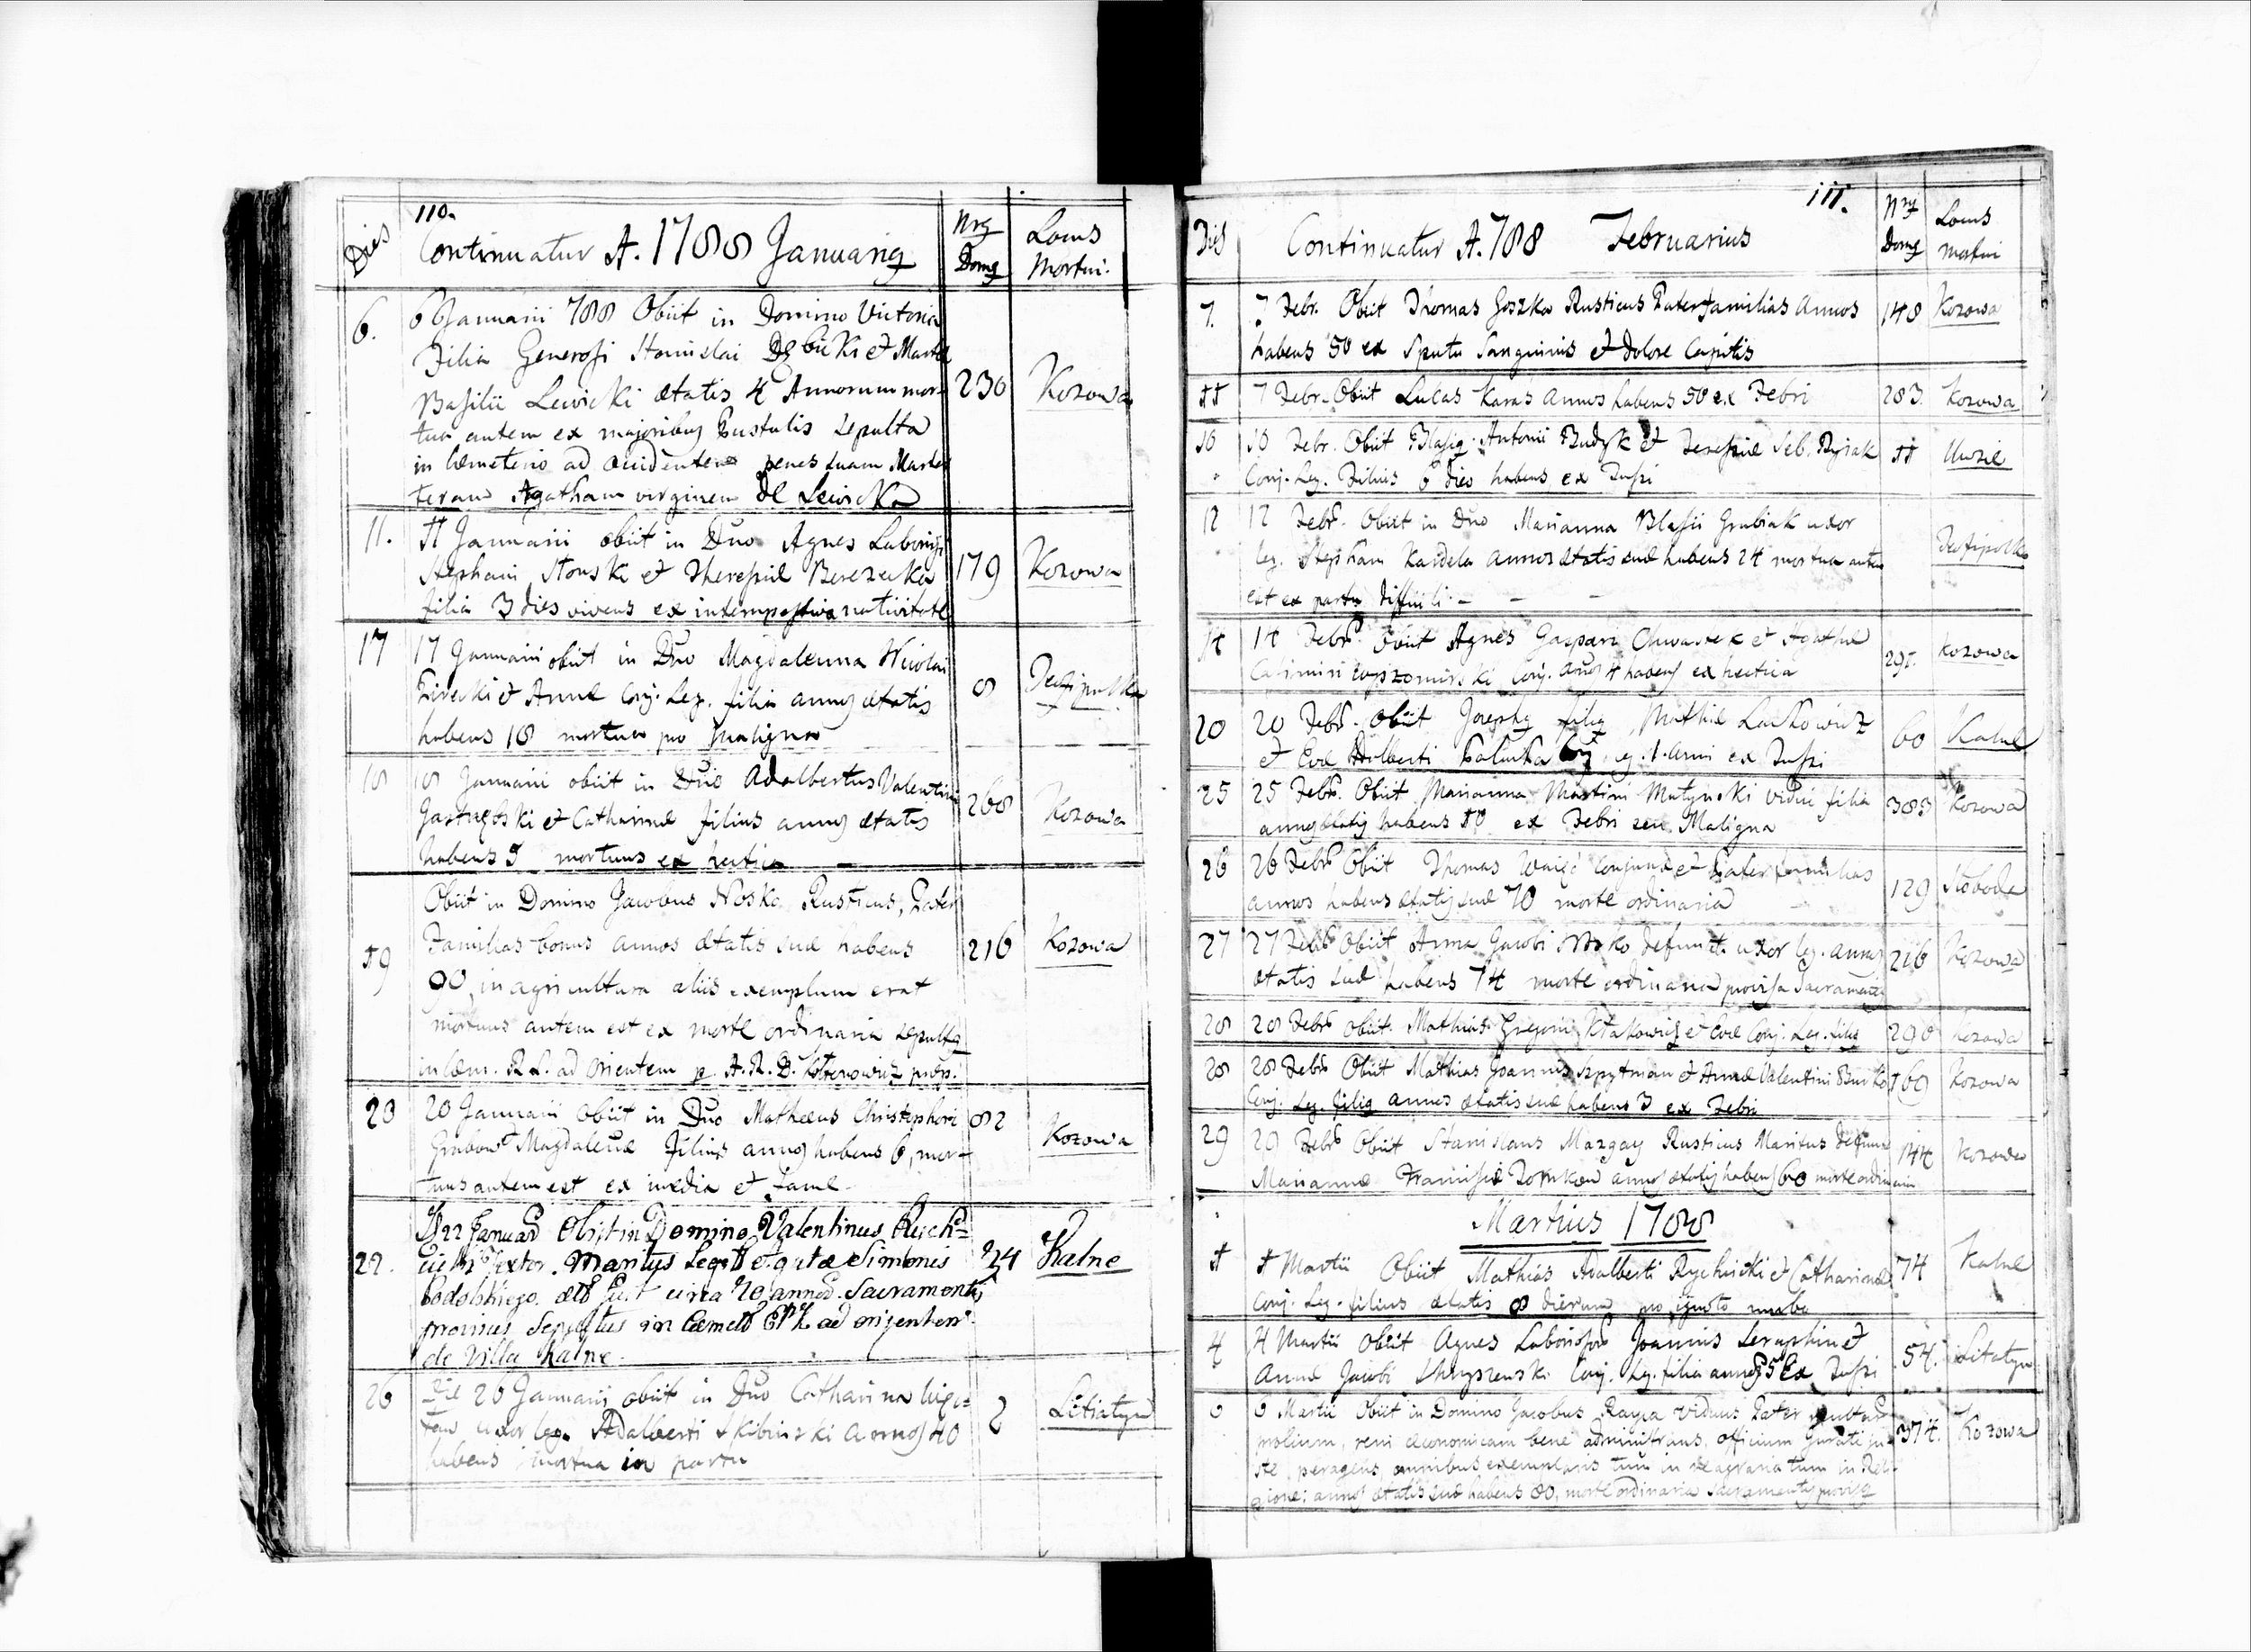 110.
Dies
Continuatur A. 1788 Januarig
Nrg Domg
Locus Mortui.
6.
6 Januarii 788 Obiit in Domino Victoria
Filia Generosi Stanislai et
Basilii Lewicki ætatis 4 Annorum mor-
tua autem ex majoribus Pustulis sepulta
in Cæmeterio ad occidentem penes suam Mater
teram Agatham virginem de Lewicka
230
Kozowa
11.
11 Januarii obiit in Dno Agnes Laboriosi
Stephani Stouski et Theresiæ Berezucka
filia 3 dies vivens ex intempestiva nativitate
179
Kozowa
17
17 Januarii obiit in Dno Magdalenna Nicolai
et Annæ Conj. Leg. filia annos ætatis
habens 18 mortua pro Maligna
8
Teofipulka
18
18 Januarii obiit in Dno Adalbertus Valentini
et Catharinæ filius annos ætatis
habens 5 mortuus ex hectica
268
Kozowa
19
Obiit in Domino Jacobus Nosko Rusticus, Pater
Familias bonus annos ætatis suæ habens
80, in agricultura aliis exemplum erat
mortuus autem est ex morte ordinaria sepultg
in Cæm. R. L. ad Orientem p. A. R. D.
216
Kozowa
20
20 Januarii Obiit in Dno Mathæus Christophori
Grabow et Magdalenæ Filius annos habens 6, mor-
tuus autem est ex inedia et fame
82
Kozowa
22.
22 Januar Obiit in Domino Valentinus
Maritus Legit Agatæ Simonis
Podolskiego. circa 70 annos. Sacramentis
provisus Sepultus in Cæmet ad orientem
de Villa Kalne
24
Kalne
26
Die 26 Januarii obiit in Dno Catharina
uxor leg. Adalberti Skibinski annos 40
habens mortua in partu
2
Litiatyn
111.
Dies
Continuatur A. 788 Februarius
Nrg Domg
Locus mortui
7.
7 Febr. Obiit Thomas Goszko Rusticus Paterfamilias annos
habens 50 ex Sputu Sanguinis et dolore Capitis
148
Kozowa
11
7 Febr. Obiit Lucas Karas annos habens 50 ex Febri
283.
Kozowa
10
10 Febr. Obiit Blasig Antonii Budyk et Theresiæ Seb. Byrak
Conj. Leg. Filius 6 dies habens ex Tussi
11
Uwsie
12
12 Febr. Obiit in Dno Marianna Blasii Grabiak uxor
leg. Stephani Kardela annos ætatis suæ habens 24 mortua autem
est ex partu difficili
Teofipolka
14
14 Febr. Obiit Agnes Gaspari et Agathæ
Casimiri Conj. annos 4 habens ex hectica
Kozowa
20
20 Febr. Obiit Josephg filig Mathiæ Laskowicz
et Evæ Adalberti Conj. Leg. 1. anni ex Tussi
60
Kalne
25
25 Febr. Obiit Marianna Martini Matynski vidui filia
annos ætatis habens 10 ex Febri seu Maligna
383
Kozowa
26
26 Febr Obiit Thomas et Pater familias
annos habens ætatis suæ 70 morte ordinaria
129
Sloboda
27
27 Febr Obiit Anna Jacobi Nosko defuncti uxor leg. annos
ætatis suæ habens 74 morte ordinaria provisa Sacramentis
216
Kozowa
28
28 Febr obiit Mathias Gregorii et Evæ Conj. Leg. filig
290
Kozowa
28
28 Febr Obiit Mathias Joannis Szpytman et Annæ Valentini Burko
Conj. Leg. filig annos ætatis suæ habens 3 ex Febri
169
Kozowa
29
29 Febr Obiit Stanislaus Mazgay Rusticus Maritus defunc
Mariannæ Francisci annos ætatis habens 60 morte ordinaria
144
Kozowa
Martius 1788
1
1 Martii Obiit Mathias Adalberti Rychlicki et Catharinæ
Conj. Leg. filius ætatis 8 dierum pro ignoto morbo
74
Kalne
4
4 Martii Obiit Agnes Laboriosor Joannis Seraphin et
Annæ Jacobi Conj. Leg. filia annos 5 Ex Tussi
54.
Litiatyn
6
6 Martii Obiit in Domino Jacobus Rayca Viduus Pater multar
prolium, rem æconomicam bene administrans, officium Jurati ju-
ste peragens, omnibus exemplaris tum in re agraria tum in Reli-
gione; annos ætatis suæ habens 80, morte ordinaria Sacramentis provisg
374.
Kozowa